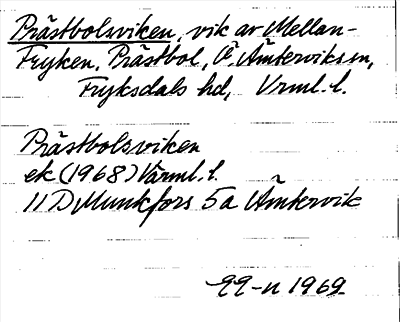 Prästbolsviken, vik av Mellan-
Fryken, Prästbol, Ö. Ämterviks sn,
Fryksdals hd, Vrml. l.
Prästbolsviken
ek (1968) Värml. l.
11D Munkfors 5a Ämtervik
1969